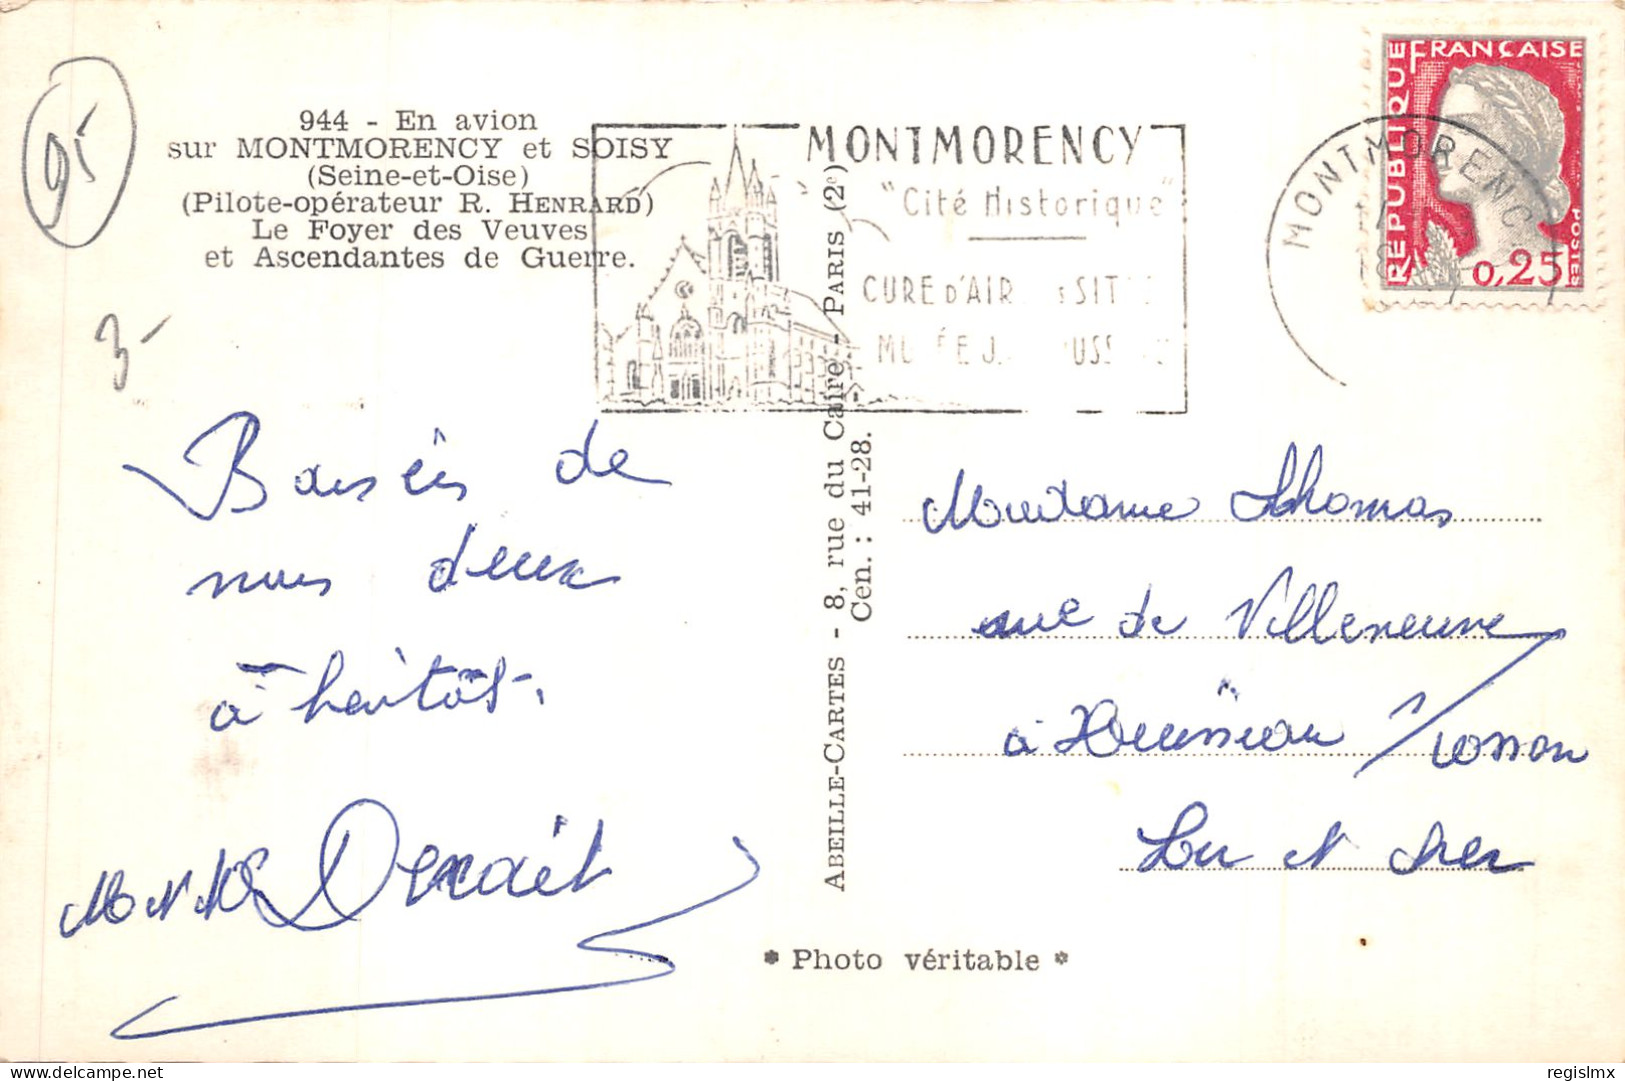 95
944 - En avion
sur MONTMORENCY et SOISY
(Seine-et-Oise)
(Pilote-opérateur R. HENRARD)
Le Foyer des Veuves
et Ascendantes de Guerre.
3-
MONTMORENCY
"Cité Historique"
CURE D'AIR SIT
MONTMORENC
RÉPUBLIQUE FRANÇAISE
0,25
ABEILLE-CARTES - 8, rue du Caire - PARIS (2e)
Cen. : 41-28.
Baisers de
nous deux
à bientôt.
M et Me
Madame Thomas
rue de Villeneuve
à Huisseau s/Cosson
Loir et Cher
* Photo véritable *
regislmx